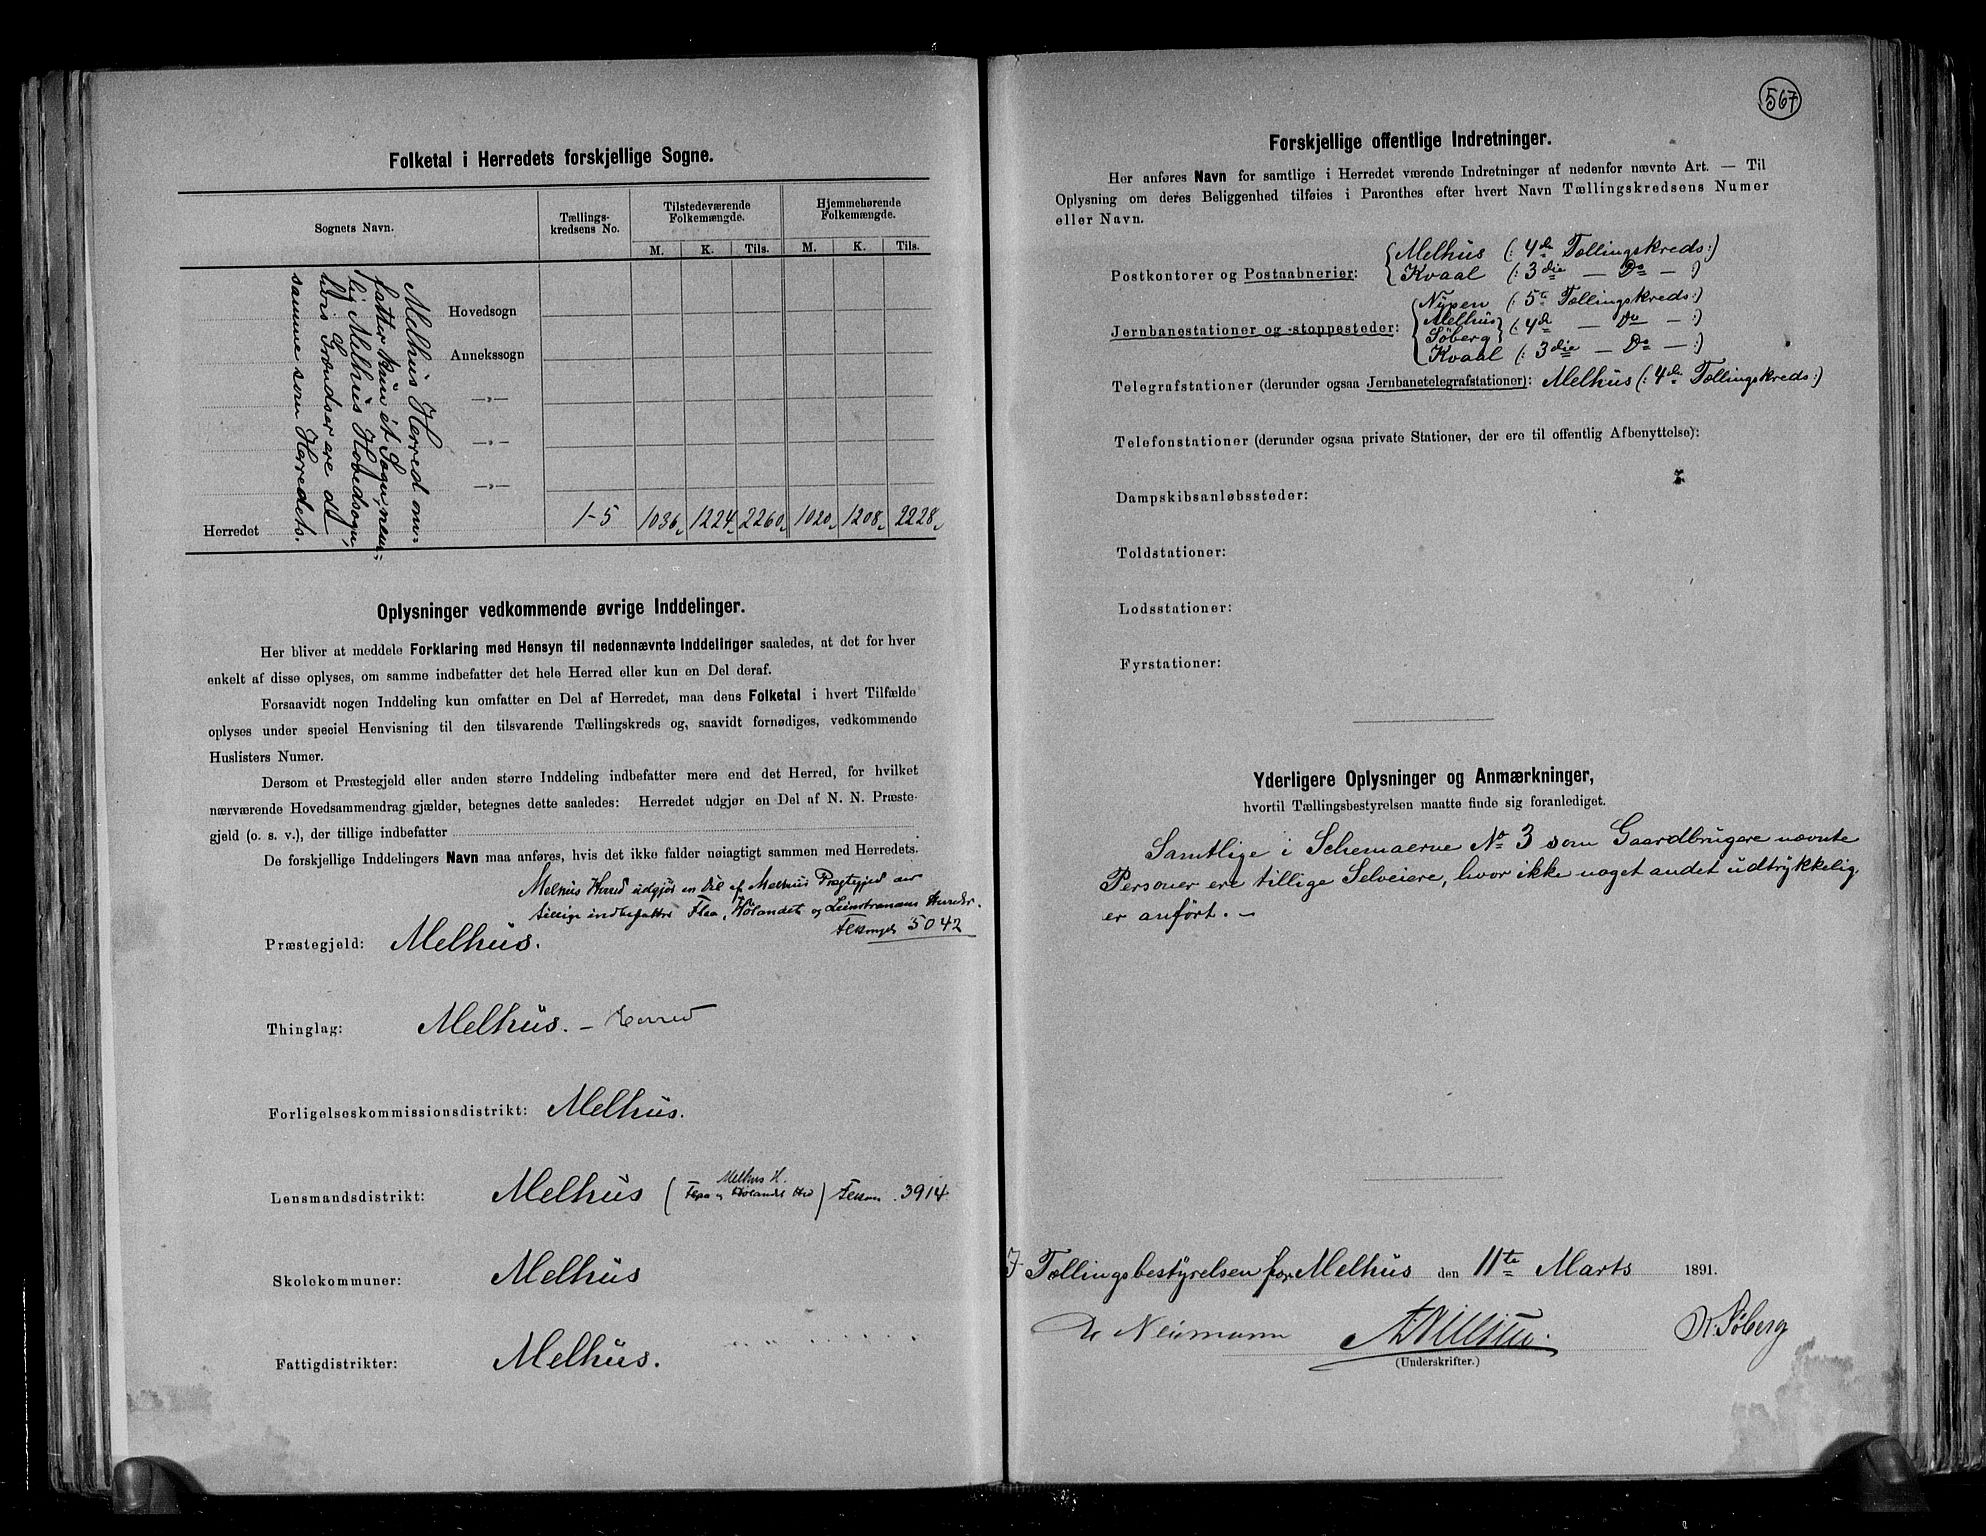 Folketal i Herredets forskjellige Sogne.
Sognets Navn.
Tællings-
kredsens No.
Tilstedeværende
Folkemængde.
Hjemmehørende
Folkemængde.
M. K. Tils. M. K. Tils.
Melhus Herred om-
fatter kun ét Sogn, nem-
lig Melhus Hovedsogn,
hvis Grændser ere de
samme som Herredets.
Hovedsogn
Annekssogn
—„—
—„—
—„—
Herredet 1-5 1036 1224 2260 1020 1208 2228
Oplysninger vedkommende øvrige Inddelinger.
Her bliver at meddele Forklaring med Hensyn til nedennævnte Inddelinger saaledes, at det for hver
enkelt af disse oplyses, om samme indbefatter det hele Herred eller kun en Del deraf.
Forsaavidt nogen Inddeling kun omfatter en Del af Herredet, maa dens Folketal i hvert Tilfælde
oplyses under speciel Henvisning til den tilsvarende Tællingskreds og, saavidt fornødiges, vedkommende
Huslisters Numer.
Dersom et Præstegjeld eller anden større Inddeling indbefatter mere end det Herred, for hvilket
nærværende Hovedsammendrag gjælder, betegnes dette saaledes: Herredet udgjør en Del af N. N. Præste-
gjeld (o. s. v.), der tillige indbefatter
De forskjellige Inddelingers Navn maa anføres, hvis det ikke falder nøiagtigt sammen med Herredets.
Melhus Herred udgjør en Del af Melhus Prgstegjed der
tillige indbefatter Flaa, Hølandets og Leinstranens Herreder.
5042
Præstegjeld: Melhus.
Thinglag: Melhus. – Herred
Forligelseskommissionsdistrikt: Melhus.
Melhus H.
Lensmandsdistrikt: Melhus (Flaa og Hølandet Hrd) 3914
Skolekommuner: Melhus
Fattigdistrikter: Melhus.
567
Forskjellige offentlige Indretninger.
Her anføres Navn for samtlige i Herredet værende Indretninger af nedenfor nævnte Art. — Til
Oplysning om deres Beliggenhed tilføies i Paronthes efter hvert Navn Tællingskredsens Numer
eller Navn.
Melhus (: 4de Tællingskreds:)
Postkontorer og Postaabnerier: Kvaal (: 3die — Do — :)
Nypen (: 5te Tællingskreds:)
Jernbanestationer og -stoppesteder: Melhus
Søberg (: 4de — Do — :)
Kvaal (: 3die — Do — :)
Telegrafstationer (derunder ogsaa Jernbanetelegrafstationer): Melhus (: 4de Tællingskreds:)
Telefonstationer (derunder ogsaa private Stationer, der ere til offentlig Afbenyttelse):
Dampskibsanløbssteder:
Toldstationer:
Lodsstationer:
Fyrstationer:
Yderligere Oplysninger og Anmærkninger,
hvortil Tællingsbestyrelsen maatte finde sig foranlediget.
Samtlige i Schemaerne No 3 som Gaardbrugere nævnte
Personer ere tillige Selveiere, hvor ikke noget andet udtrykkelig
er anført. –
I Tællingsbestyrelsen for Melhus den 11te Marts 1891.
Neumann
Søberg
(Underskrifter.)